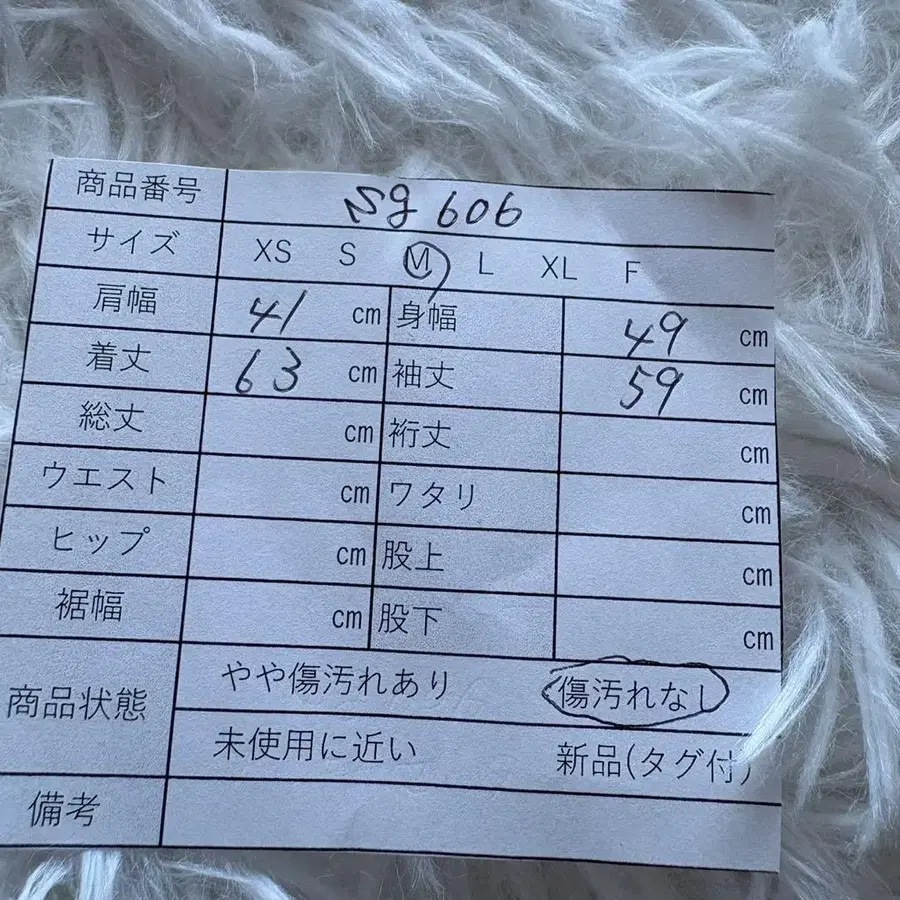 商品番号 Sg 606
サイズ XS S M L XL F
肩幅 41 cm 身幅 49 cm
着丈 63 cm 袖丈 59 cm
総丈 cm 裄丈 cm
ウエスト cm ワタリ cm
ヒップ cm 股上 cm
裾幅 cm 股下 cm
商品状態 やや傷汚れあり 傷汚れなし
未使用に近い 新品(タグ付)
備考